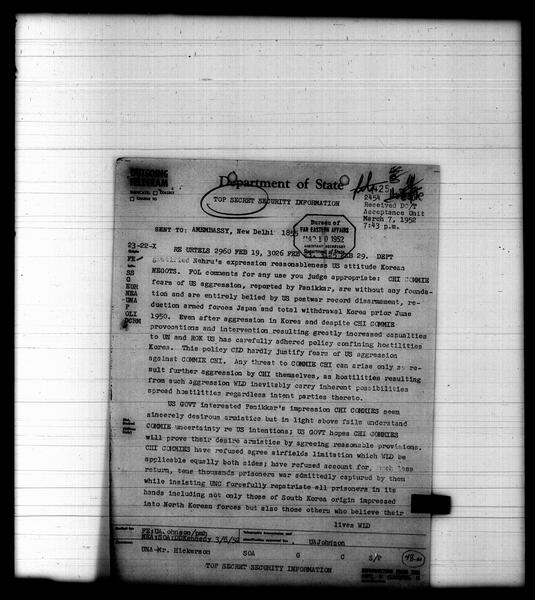 OUTGOING
TELEGRAM
Department of State
TOP SECRET SECURITY INFORMATION
2454
Received DC/T
Acceptance Unit
March 7, 1952
7:43 p.m.
SENT TO: AMEMBASSY, New Delhi 1855
Bureau of
FAR EASTERN AFFAIRS
1952
23-22-X
RE URTELS 2960 FEB 19, 3026 FEB 29. DEPT
FE
SS
G
EUR
NEA
UNA
P
OLI
DCRM
gratified Nehru's expression reasonableness US attitude Korean
NEGOTS. FOL comments for any use you judge appropriate: CHI COMMIE
fears of US aggression, reported by Panikkar, are without any founda-
tion and are entirely belied by US postwar record disarmament, re-
duction armed forces Japan and total withdrawal Korea prior June
1950. Even after aggression in Korea and despite CHI COMMIE
provocations and intervention resulting greatly increased casualties
to UN and ROK US has carefully adhered policy confining hostilities
Korea. This policy CLD hardly justify fears of US aggression
against COMMIE CHI. Any threat to COMMIE CHI can arise only as re-
sult further aggression by CHI themselves, as hostilities resulting
from such aggression WLD inevitably carry inherent possibilities
spread hostilities regardless intent parties thereto.
US GOVT interested Panikkar's impression CHI COMMIES seem
sincerely desirous armistice but in light above fails understand
COMMIE uncertainty re US intentions; US GOVT hopes CHI COMMIES
will prove their desire armistice by agreeing reasonable provisions.
CHI COMMIES have refused agree airfields limitation which WLD be
applicable equally both sides; have refused account for, much less
return, tens thousands prisoners war admittedly captured by them
while insisting UNC forcefully repatriate all prisoners in its
hands including not only those of South Korea origin impressed
into North Korean forces but also those others who believe their
lives WLD
FE:UAJohnson/pmh
NEA:SOA:DDKennedy 3/6/52
UAJohnson
UNA-Mr. Hickerson SOA G C S/P
TOP SECRET SECURITY INFORMATION